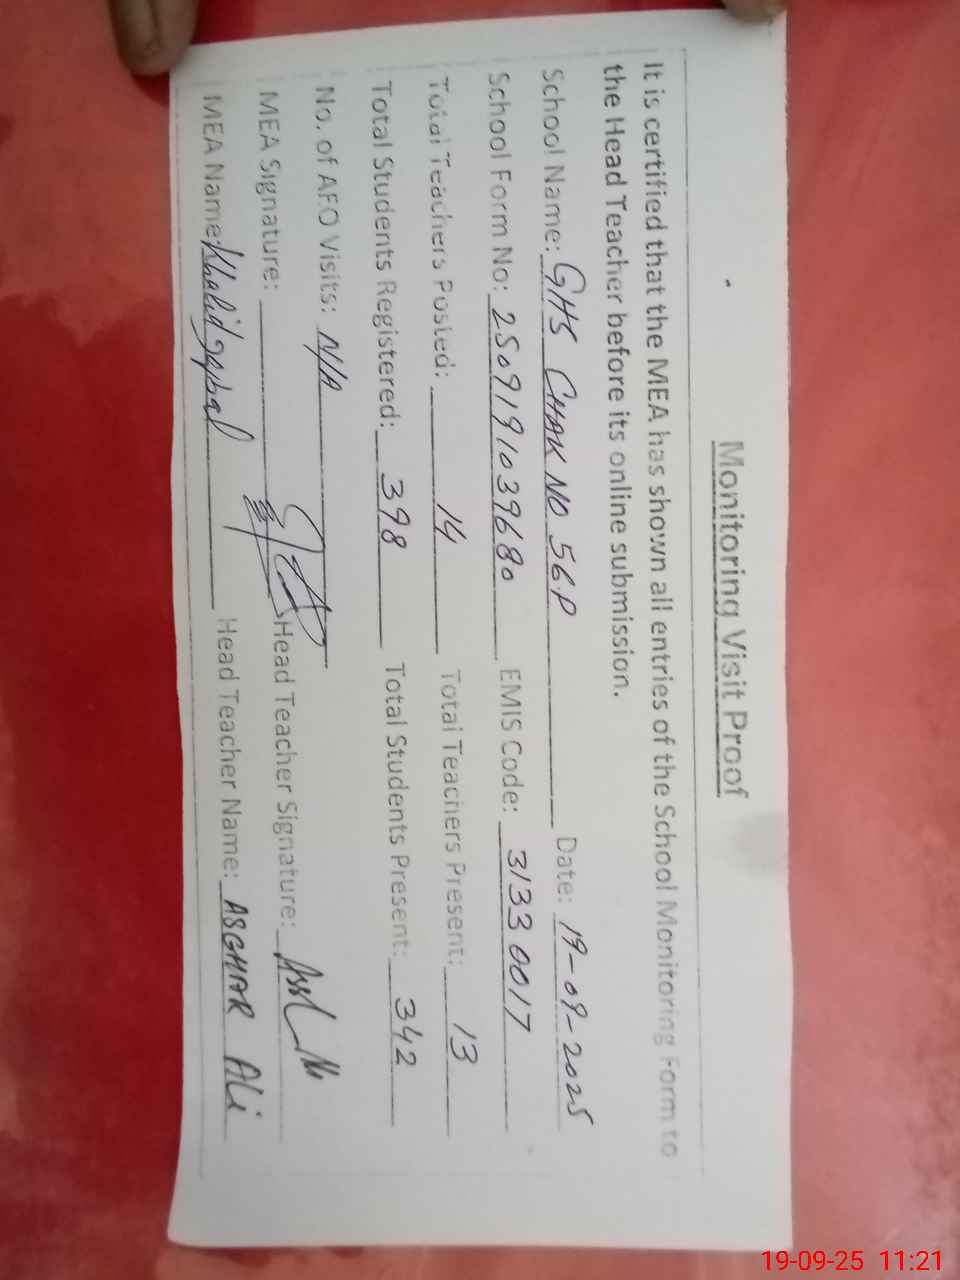 Monitoring Visit Proof
It is certified that the MEA has shown all entries of the School Monitoring Form to
the Head Teacher before its online submission.
School Name: GHS CHAK NO 56.P Date: 19-09-2025
School Form No: 2509191039680 EMIS Code: 31330017
Total Teachers Posted: 14 Total Teachers Present: 13
Total Students Registered: 398 Total Students Present: 342
No. of AFO Visits: N/A
MEA Signature: Head Teacher Signature:
MEA Name: Khalid Iqbal Head Teacher Name: ASGHAR Ali
19-09-25 11:21